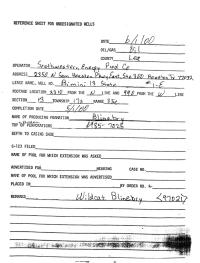 REFERENCE SHEET FOR UNDESIGNATED WELLS
DATE 6/1/00
OIL/GAS Oil
COUNTY Lea
OPERATOR Southwestern Energy Prod Co
ADDRESS 2350 N Sam Houston Pkwy East, Ste 300 Houston Tx 77032
LEASE NAME, WELL NO. Rimini 13 State #1-E
FOOTAGE LOCATION 2310 FROM THE N LINE AND 990 FROM THE W LINE
SECTION 13 TOWNSHIP 17s RANGE 35e
COMPLETION DATE 5/1/00
NAME OF PRODUCING FORMATION Blinebry
TOP OF PERFORATIONS 6985-7028
DEPTH TO CASING SHOE
C-123 FILED
NAME OF POOL FOR WHICH EXTENSION WAS ASKED
ADVERTISED FOR HEARING CASE NO.
NAME OF POOL FOR WHICH EXTENSION WAS ADVERTISED
PLACED IN BY ORDER NO. R-
REMARKS Wildcat Blinebry <97021>